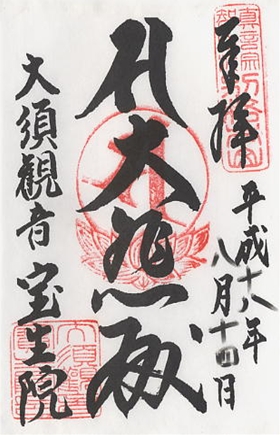 奉拝
平成十八年
八月十四日
大悲殿
大須觀音 宝生院